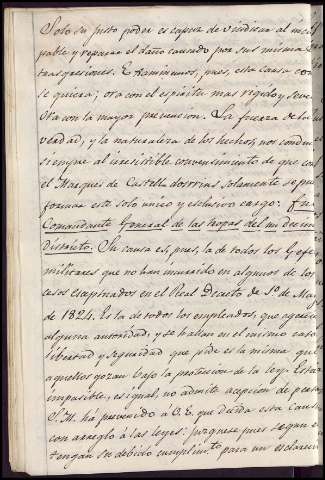 Solo su justo poder es capaz de vindicar al incul
pable y reparar el daño causado por sus mismas
trasgresiones. Examinemos, pues, esta causa co
se quiera; ora con el espíritu mas rígido y seve
ora con la mayor prevencion. La fuerza de la
verdad, y la naturaleza de los hechos, nos condu
siempre al irresistible convencimiento de que con
el Marques de Castelldosrrius solamente se pue
formar este solo único y esclusivo cargo: fue
Comandante General de las tropas del
Distrito. Su causa es, pues, la de todos los Gefes
militares que no han incurrido en algunos de los
casos esceptuados en el Real Decreto de 1º de May
de 1824. Es la de todos los empleados, que egercie
alguna autoridad, y se hallan en el mismo caso
libertad y seguridad que pide es la misma que
aquellos gozan bajo la proteccion de la ley. Esta es
impasible, es igual, no admite acepcion de perso
S.M. há prevenido á V.E. que decida esta causa
con arreglo á las leyes: juzguese pues segun e
tengan su debido cumplimto para un esclareci